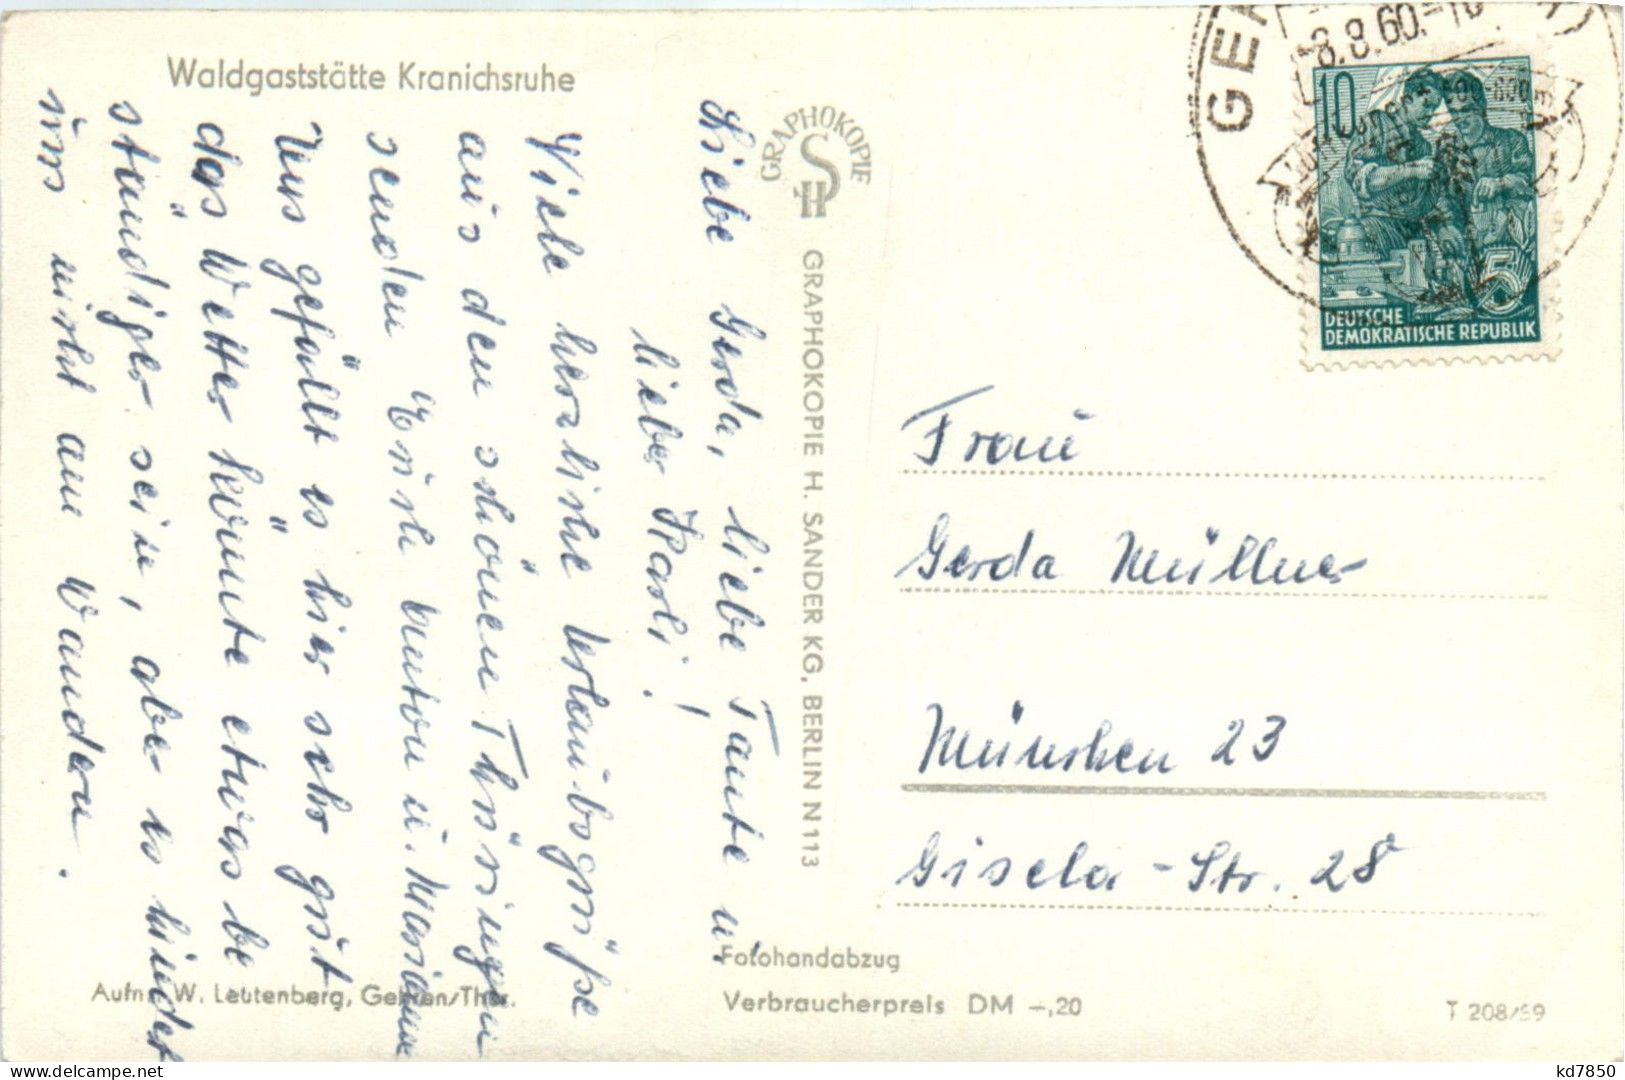 Waldgaststätte Kranichsruhe
Liebe Gerda, liebe Tante u.
lieber Karli!
Viele herzliche Urlaubsgrüße
aus den schönen Thüringen
senden Euch Anton u. Mariann
Uns gefällt es hier sehr gut
das Wetter könnte etwas be
ständiger sein, aber es hindert
uns nicht am Wandern.
GRAPHOKOPIE
HS
GRAPHOKOPIE H. SANDER KG, BERLIN N 113
8.8.60.-10
10
5
DEUTSCHE
DEMOKRATISCHE REPUBLIK
Frau
Gerda Müllner
München 23
Gisela-Str. 28
Aufn. W. Leutenberg, Gehren/Thür.
Fotohandabzug
Verbraucherpreis DM -,20
T 208/59
kd7850